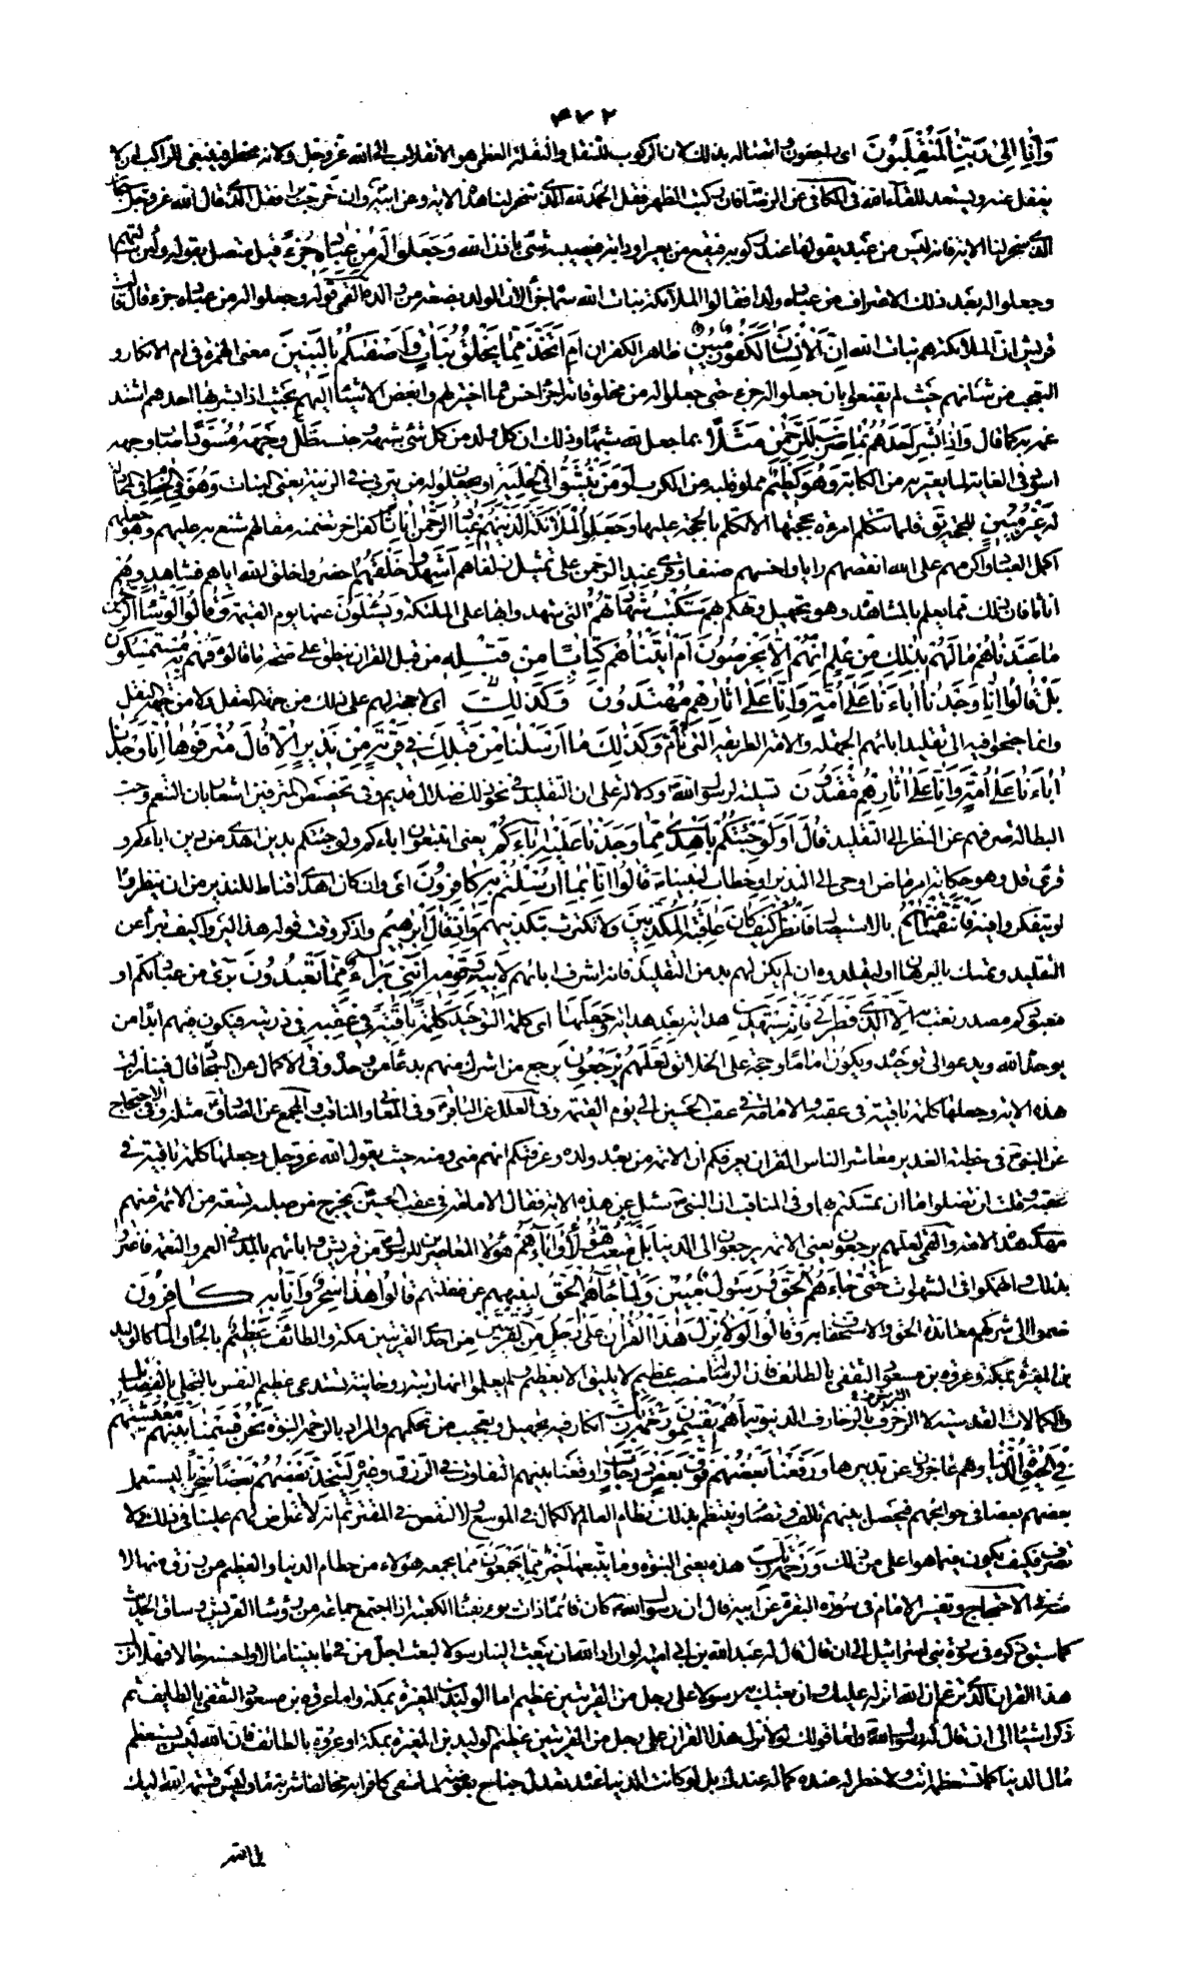 ٤٧٢
وَإِنَّا إِلَىٰ رَبِّنَا لَمُنْقَلِبُونَ اى راجعون واتصاله بذلك لان الركوب للتنقل والنقلة العظمى هو الانقلاب الى الله عز وجل ولانه مخطر فينبغى للراكب ان لا
يغفل عنه ويستعد للقاء الله فى الكافى عن الرضا فان ركبت الظهر فقل الحمد لله الذى سخر لنا هذا الاية وعن ابيه وان خرجت برا فقل الذى قال الله عز وجل
الذى سخر لنا الاية فانه ليس من عبد يقولها عند ركوبه فيقع من بعير او دابة فيصيبه شئ باذن الله وَجَعَلُوا لَهُ مِنْ عِبَادِهِ جُزْءً قيل متصل بقوله ولئن سئلتهم اى
وجعلوا له بعد ذلك الاعتراف من عباده ولدا فقالوا الملائكة بنات الله سماه جزأ لان الولد بضعة من والده القمى قوله وجعلوا له من عباده جزء قال قالت
قريش ان الملائكة هم بنات الله إِنَّ الْإِنْسَانَ لَكَفُورٌ مُبِينٌ ظاهر الكفران أَمِ اتَّخَذَ مِمَّا يَخْلُقُ بَنَاتٍ وَأَصْفَيكُمْ بِالْبَنِينَ معنى الهمزة فى ام الانكار و
التعجب من شانهم حيث لم يقنعوا بان جعلوا له جزء حتى جعلوا له من مخلوقاته اجزاء اخس مما اختير لهم وابغض الاشياء اليهم بحيث اذا بشر بها احدهم اشتد
غمه به كما قال وَإِذَا بُشِّرَ أَحَدُهُمْ بِمَا ضَرَبَ لِلرَّحْمٰنِ مَثَلًا بما جعل لله شبها وذلك ان كل ولد من كل شئ شبهه وجنسه ظَلَّ وَجْهُهُ مُسْوَدًّا صار وجهه
اسود فى الغاية لما يعتريه من الكابة وَهُوَ كَظِيمٌ مملو قلبه من الكرب أَوَمَنْ يُنَشَّؤُا فِى الْحِلْيَةِ او يجعلون له من يتربى فى الزينة يعنى البنات وَهُوَ فِى الْخِصَامِ فى المجادلة
غَيْرُ مُبِينٍ للحجة فلما تتكلم امرئة بحجتها الا تتكلم بالحجة عليها وَجَعَلُوا الْمَلٰئِكَةَ الَّذِينَ هُمْ عِبَادُ الرَّحْمٰنِ إِنَاثًا كفر اخر تضمنه مقالهم شنع به عليهم وهو جعلهم
اكمل العباد واكرمهم على الله انقصهم رايا واخسهم صنفا وقرئ عند الرحمن على تمثيل زلفاهم أَشَهِدُوا خَلْقَهُمْ احضروا خلق الله اياهم فشاهدوهم
اناثا فان ذلك مما يعلم بالمشاهدة وهو تجهيل وتهكم بهم سَتُكْتَبُ شَهَادَتُهُمْ التى شهدوا بها على الملئكة وَيُسْئَلُونَ عنها يوم القيمة وَقَالُوا لَوْ شَاءَ الرَّحْمٰنُ
مَا عَبَدْنَاهُمْ مَا لَهُمْ بِذٰلِكَ مِنْ عِلْمٍ إِنْ هُمْ إِلَّا يَخْرُصُونَ أَمْ اٰتَيْنَاهُمْ كِتَابًا مِنْ قَبْلِهِ من قبل القران ينطق على صحة ما قالوه فَهُمْ بِهِ مُسْتَمْسِكُونَ
بَلْ قَالُوا إِنَّا وَجَدْنَا اٰبَاءَنَا عَلَىٰ أُمَّةٍ وَإِنَّا عَلَىٰ اٰثَارِهِمْ مُهْتَدُونَ وَكَذٰلِكَ اى لا حجة لهم على ذلك من جهة العقل ولا من جهة النقل
وانما جنحوا فيه الى تقليد ابائهم الجهلة والامة الطريقة التى تأم وَكَذٰلِكَ مَا أَرْسَلْنَا مِنْ قَبْلِكَ فِى قَرْيَةٍ مِنْ نَذِيرٍ إِلَّا قَالَ مُتْرَفُوهَا إِنَّا وَجَدْنَا
اٰبَاءَنَا عَلَىٰ أُمَّةٍ وَإِنَّا عَلَىٰ اٰثَارِهِمْ مُقْتَدُونَ تسلية لرسول الله ودلالة على ان التقليد فى نحو ذلك ضلال قديم وفى تخصيص المترفين اشعار بان التنعم وحب
البطالة صرفهم عن النظر الى التقليد قَالَ أَوَلَوْ جِئْتُكُمْ بِأَهْدَىٰ مِمَّا وَجَدْتُمْ عَلَيْهِ اٰبَاءَكُمْ يعنى اتتبعون اباءكم ولو جئتكم بدين اهدى من دين اباءكم و
قرئ قل وهو حكاية امر ماض اوحى الى النذير او خطاب لنبينا قَالُوا إِنَّا بِمَا أُرْسِلْتُمْ بِهِ كَافِرُونَ اى وان كان اهدى اقناط للنذير من ان ينظروا
او يتفكروا فيه فَانْتَقَمْنَا مِنْهُمْ بالاستيصال فَانْظُرْ كَيْفَ كَانَ عَاقِبَةُ الْمُكَذِّبِينَ ولا تكترث بتكذيبهم وَإِذْ قَالَ إِبْرٰهِيمُ واذكر وقت قوله هذا ليروا كيف تبرأ عن
التقليد وتمسك بالبرهان او ليقلدوه ان لم يكن لهم بد من التقليد فانه اشرف ابائهم لِأَبِيهِ وَقَوْمِهِ إِنَّنِى بَرَاءٌ مِمَّا تَعْبُدُونَ برئ من عبادتكم او
معبودكم مصدر نعت به إِلَّا الَّذِى فَطَرَنِى فَإِنَّهُ سَيَهْدِينِ هداية بعد هداية وَجَعَلَهَا اى كلمة التوحيد كَلِمَةً بَاقِيَةً فِى عَقِبِهِ فى ذريته فيكون فيهم ابدا من
يوحد الله ويدعو الى توحيده ويكون اماما وحجة على الخلائق لَعَلَّهُمْ يَرْجِعُونَ يرجع من اشرك منهم بدعاء من وحد وفى الاكمال عن السجاد قال فينا نزلت
هذه الاية وجعلها كلمة باقية فى عقبه والامامة فى عقب الحسين الى يوم القيمة وفى العلل عن الباقر وفى المعانى والمناقب والمجمع عن الصادق مثله وفى الاحتجاج
عن النبى فى خطبة الغدير معاشر الناس القران يعرفكم ان الائمة من بعده ولده وعرفتكم انهم منى ومنه حيث يقول الله عز وجل وجعلها كلمة باقية فى
عقبه وقلت لن تضلوا ما ان تمسكتم بهما وفى المناقب ان النبى سئل عن هذه الاية فقال الامامة فى عقب الحسين يخرج من صلبه تسعة من الائمة منهم
مهدى هذه الامة والقمى لعلهم يرجعون يعنى الائمة يرجعون الى الدنيا بَلْ مَتَّعْتُ هٰؤُلَاءِ وَاٰبَاءَهُمْ هؤلاء المعاصرين للرسول من قريش وابائهم بالمد فى العمر والنعمة فاغتروا
بذلك وانهمكوا فى الشهوات حَتّىٰ جَاءَهُمُ الْحَقُّ وَرَسُولٌ مُبِينٌ وَلَمَّا جَاءَهُمُ الْحَقُّ لينبههم عن غفلتهم قَالُوا هٰذَا سِحْرٌ وَإِنَّا بِهِ كَافِرُونَ
ضموا الى شركهم معاندة الحق والاستخفاف به وَقَالُوا لَوْلَا نُزِّلَ هٰذَا الْقُرْاٰنُ عَلَىٰ رَجُلٍ مِنَ الْقَرْيَتَيْنِ من احدى القريتين مكة والطائف عَظِيمٍ بالجاه والمال كالوليد
بن المغيرة بمكة وعروة بن مسعود الثقفى بالطائف فان الرسالة منصب عظيم لا يليق الا بعظيم ولم يعلموا انها رتبة روحانية تستدعى عظيم النفس بالتحلى بالفضايل
والكمالات القدسية لا التزخرف بالزخارف الدنيوية أَهُمْ يَقْسِمُونَ رَحْمَتَ رَبِّكَ انكار فيه تجهيل وتعجيب من تحكمهم والمراد بالرحمة النبوة نَحْنُ قَسَمْنَا بَيْنَهُمْ مَعِيشَتَهُمْ
فِى الْحَيٰوةِ الدُّنْيَا وهم عاجزون عن تدبيرها وَرَفَعْنَا بَعْضَهُمْ فَوْقَ بَعْضٍ دَرَجَاتٍ واوقعنا بينهم التفاوت فى الرزق وغيره لِيَتَّخِذَ بَعْضُهُمْ بَعْضًا سُخْرِيًّا ليستعمل
بعضهم بعضا فى حوائجهم فيحصل بينهم تالف وتضام وينتظم بذلك نظام العالم لا لكمال فى الموسع ولا لنقص فى المقتر ثم انه لا اعتراض لهم علينا فى ذلك ولا
تصرف فكيف يكون فيما هو اعلى من ذلك وَرَحْمَتُ رَبِّكَ هذه يعنى النبوة وما يتبعها خَيْرٌ مِمَّا يَجْمَعُونَ مما يجمعه هؤلاء من حطام الدنيا والعظيم من رزق منها لا
منه فى الاحتجاج وتفسير الامام فى سورة البقرة عن ابيه قال ان رسول الله كان قاعدا ذات يوم بفناء الكعبة اذ اجتمع جماعة من رؤساء القريش وساق الحديث
كما سبق ذكره فى سورة بنى اسرائيل الى ان قال قال له عبد الله بن ابى امية لو اراد الله ان يبعث الينا رسولا لبعث اجل من فيما بيننا مالا واحسنه حالا فهلا نزل
هذا القران الذى تزعم ان الله انزله عليك وانبعثك به رسولا على رجل من القريتين عظيم اما الوليد بن المغيرة بمكة واما عروة بن مسعود الثقفى بالطايف ثم
ذكر اشياء الى ان قال له رسول الله واما قولك لولا نزل هذا القران على رجل من القريتين عظيم الوليد بن المغيرة بمكة او عروة بالطائف فان الله ليس يستعظم
مال الدنيا كما تستعظمه انت ولا خطر له عنده كما له عندك بل لو كانت الدنيا عنده تعدل جناح بعوضة لما سقى كافرا به مخالفا شربة ماء وليس قسمة الله اليك